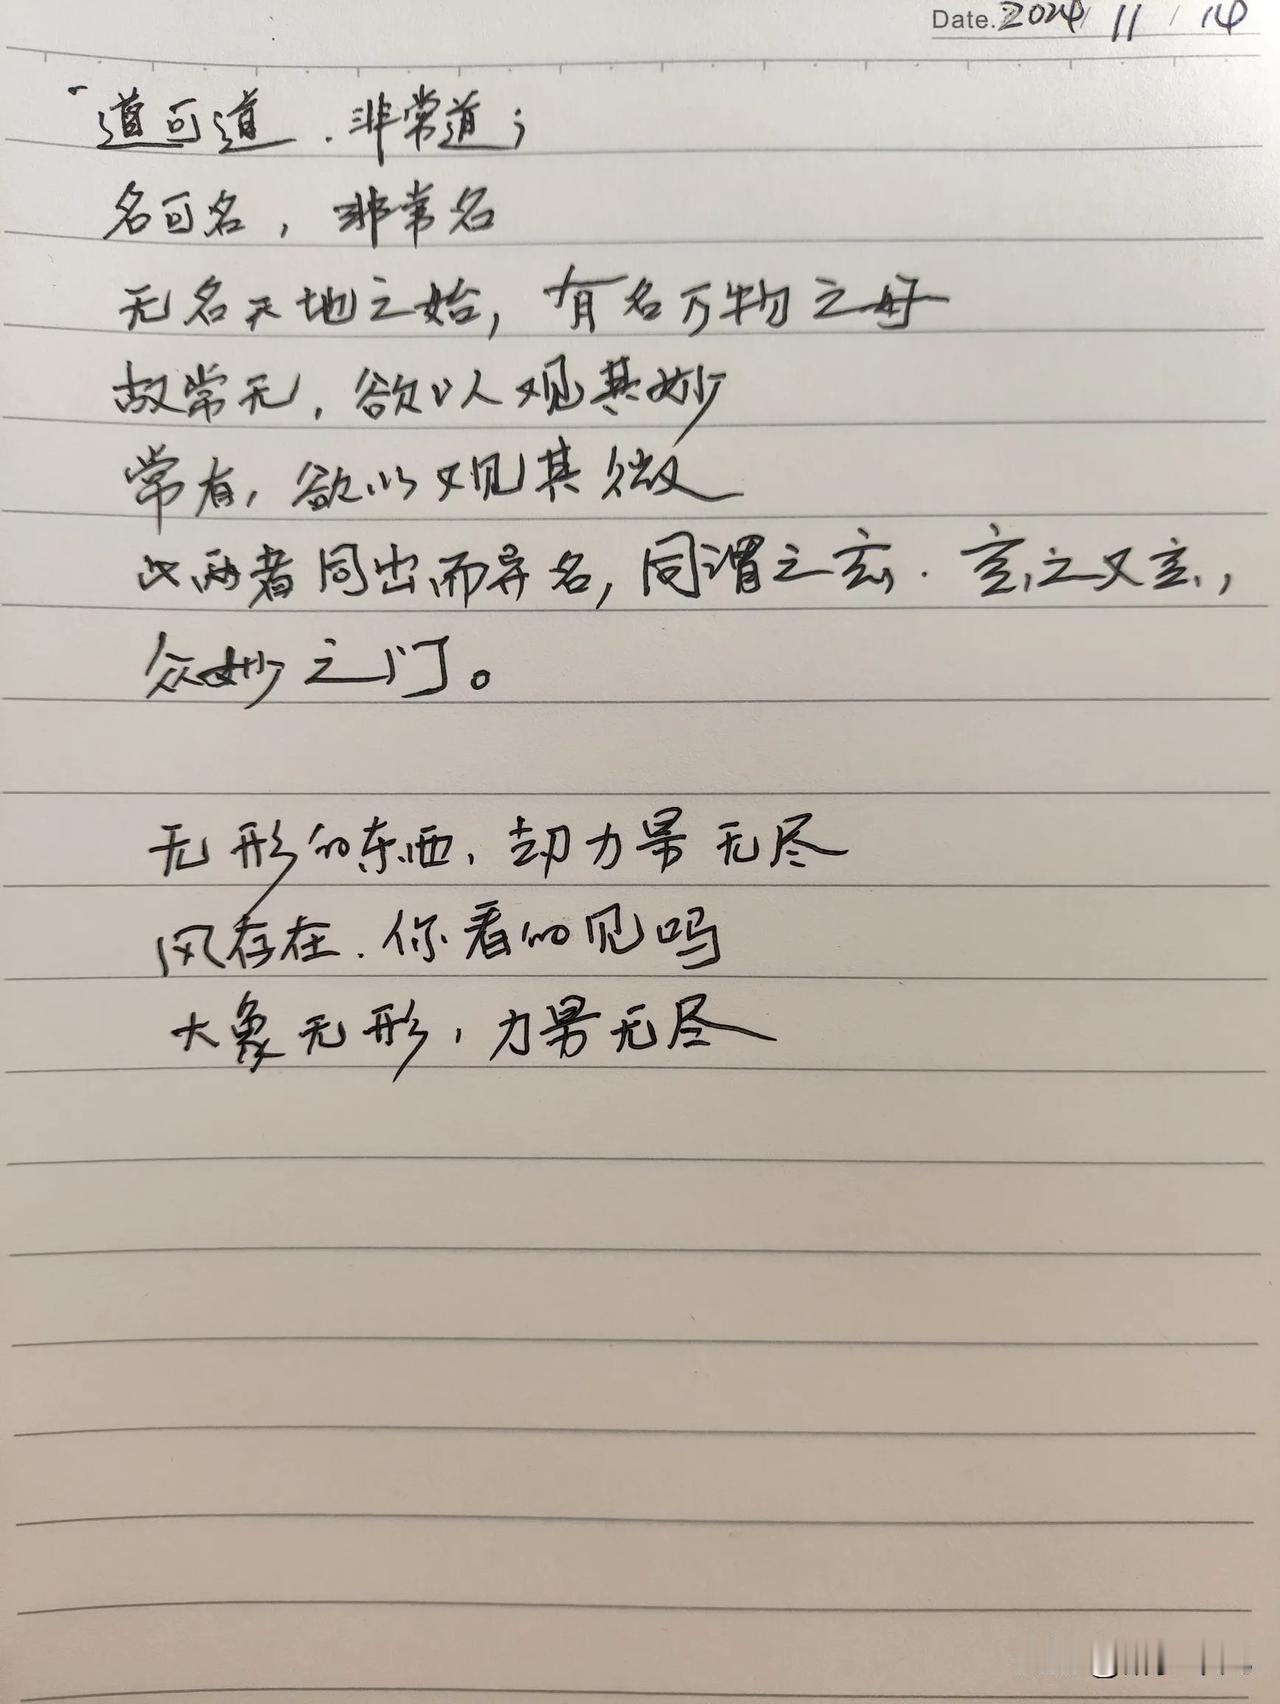 Date. 2024 / 11 / 14
道可道.非常道;
名可名,非常名
无名天地之始,有名万物之母
故常无,欲以观其妙
常有,欲以观其微
此两者同出而异名,同谓之玄.玄之又玄,
众妙之门。
无形的东西,却力量无尽
风存在.你看的见吗
大象无形,力量无尽